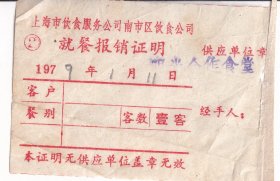 上海市饮食服务公司南市区饮食公司
就餐报销证明 供应单位章
1979年1月11日
合作食堂
客户
餐别 客数 壹客 经手人：
本证明无供应单位盖章无效